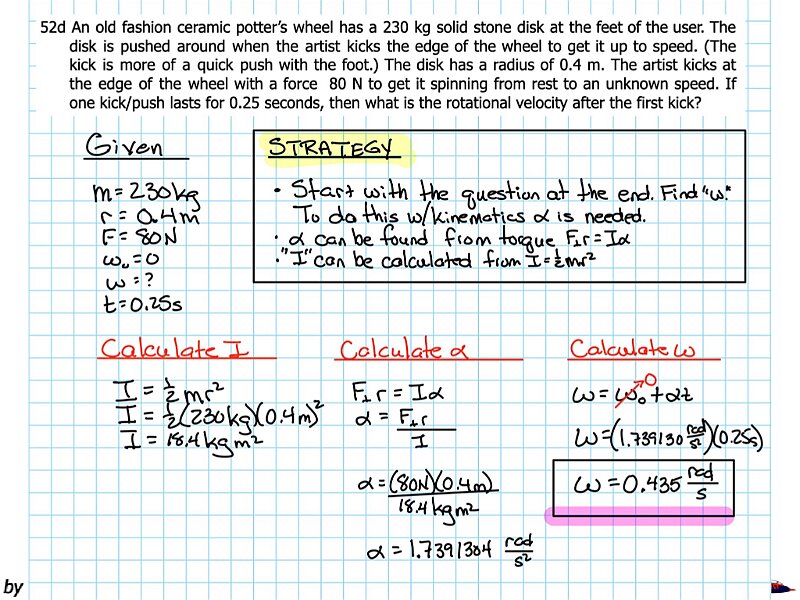 52d An old fashion ceramic potter's wheel has a 230 kg solid stone disk at the feet of the user. The
disk is pushed around when the artist kicks the edge of the wheel to get it up to speed. (The
kick is more of a quick push with the foot.) The disk has a radius of 0.4 m. The artist kicks at
the edge of the wheel with a force 80 N to get it spinning from rest to an unknown speed. If
one kick/push lasts for 0.25 seconds, then what is the rotational velocity after the first kick?
Given
m = 230 kg
r = 0.4 m
F = 80N
ω₀ = 0
ω = ?
t = 0.25s
STRATEGY
• Start with the question at the end. Find "ω."
To do this w/kinematics α is needed.
• α can be found from torque F⊥r = Iα
• "I" can be calculated from I = ½mr²
Calculate I
I = ½ mr²
I = ½(230 kg)(0.4m)²
I = 18.4 kg m²
Calculate α
F⊥ r = Iα
α = F⊥ r
I
α = (80N)(0.4m)
18.4 kg m²
α = 1.7391304 rad/s²
Calculate ω
0
ω = ω₀ + αt
ω = (1.739130 rad/s²)(0.25s)
ω = 0.435 rad/s
by